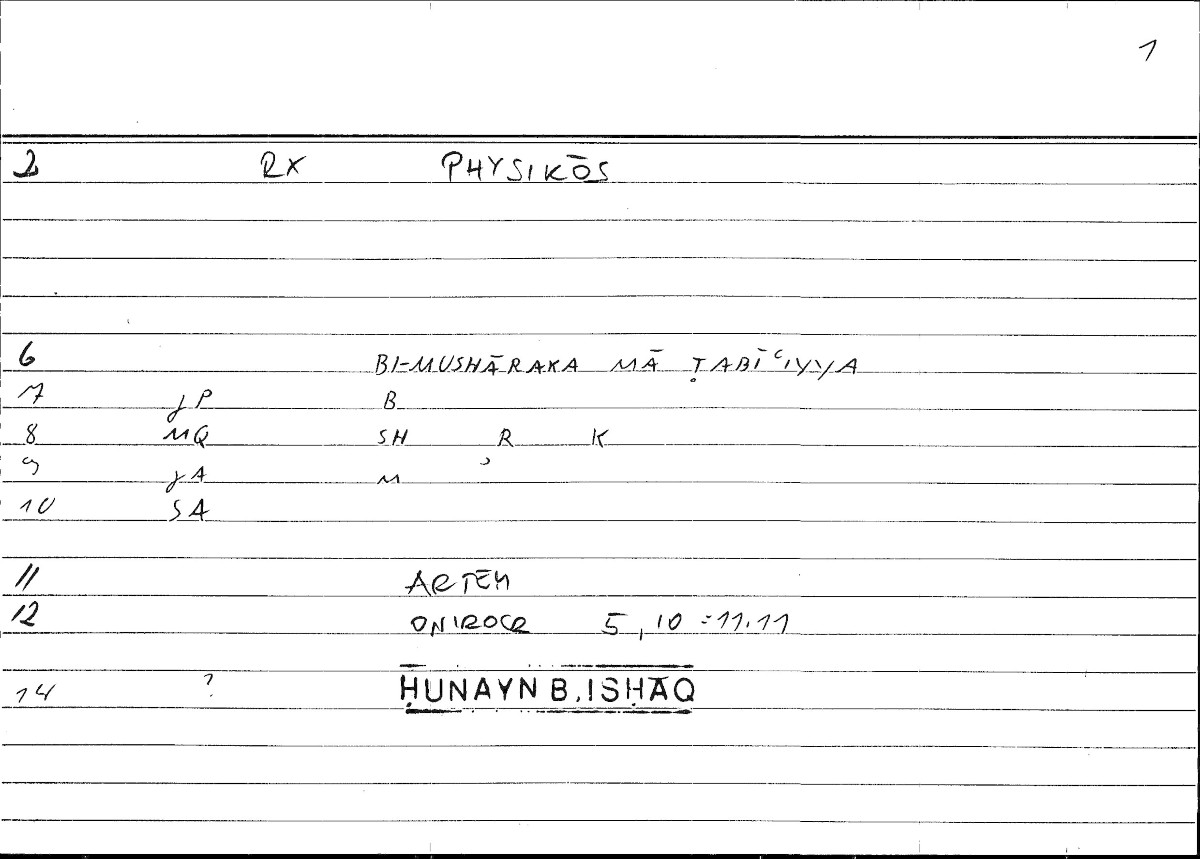 1
2 RX PHYSIKŌS
6 BI-MUSHĀRAKA MĀ ṬABĪʿIYYA
7 JP B
8 MQ SH R K
9 JA M ʾ
10 SA
11 ARTEM
12 ONIROCR 5,10 = 11.11
14 ? ḤUNAYN B. ISḤĀQ